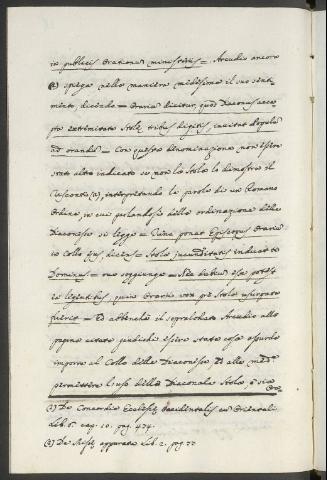 in publicis Orationum ministeriis = Arcudio ancora
(1) spiega nella maniera medesima il suo senti-
mento, dicendo = Orarium dicitur, quod Diaconus acce-
pta extremitate Stolæ tribus digitis, invitat Populum
ad orandum = Con questa denominazione, non essere
stata altro indicato se non la Stola lo dimostra il
Visconti (2), interpretando le parole di un Romano
Ordine, in cui parlandosi della ordinazione della
Diaconessa si legge = Tunc ponat Episcopus Orarium
in collo ejus, dicens = Stola jucunditatis induat te
Dominus = ma soggiunge = Nec dubium esse potest
legentibus, quin Orarium pro Stola usurpatum
fuerit = Ed abbenchè il sopralodato Arcudio alla
pagina citata giudichi essere stata cosa assurda
imporre il Collo della Diaconessa
permettere l'uso della Diaconale Stola, o sia
(1) De Concordia Ecclesiæ Occidentalis cum Orientali
Lib. 6. cap. 10. pag. 474.
(2) De Missæ apparatu Lib. 2. pag.